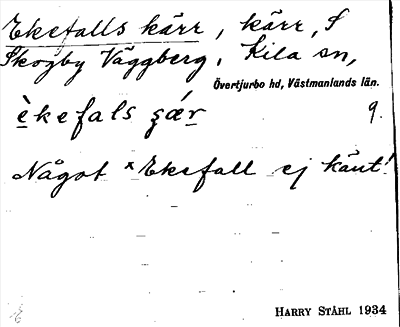 Ekefalls kärr, kärr, S
Skogby Väggberg, Kila sn,
Övertjurbo hd, Västmanlands län.
èkefals çæ̀r 9.
Något *Ekefall ej känt!
HARRY STÅHL 1934